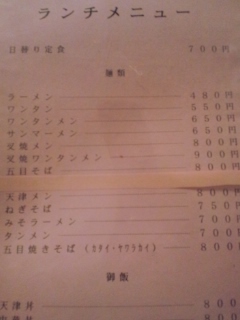 ランチメニュー
日替り定食 700円
麺類
ラーメン 480円
ワンタン 550円
ワンタンメン 650円
サンマーメン 650円
叉焼メン 800円
叉焼ワンタンメン 900円
五目そば 800円
天津メン 800円
ねぎそば 750
みそラーメン 700
タンメン 700
五目焼きそば (カタイ・ヤワラカイ) 800
御飯
天津丼 800
中華丼 800